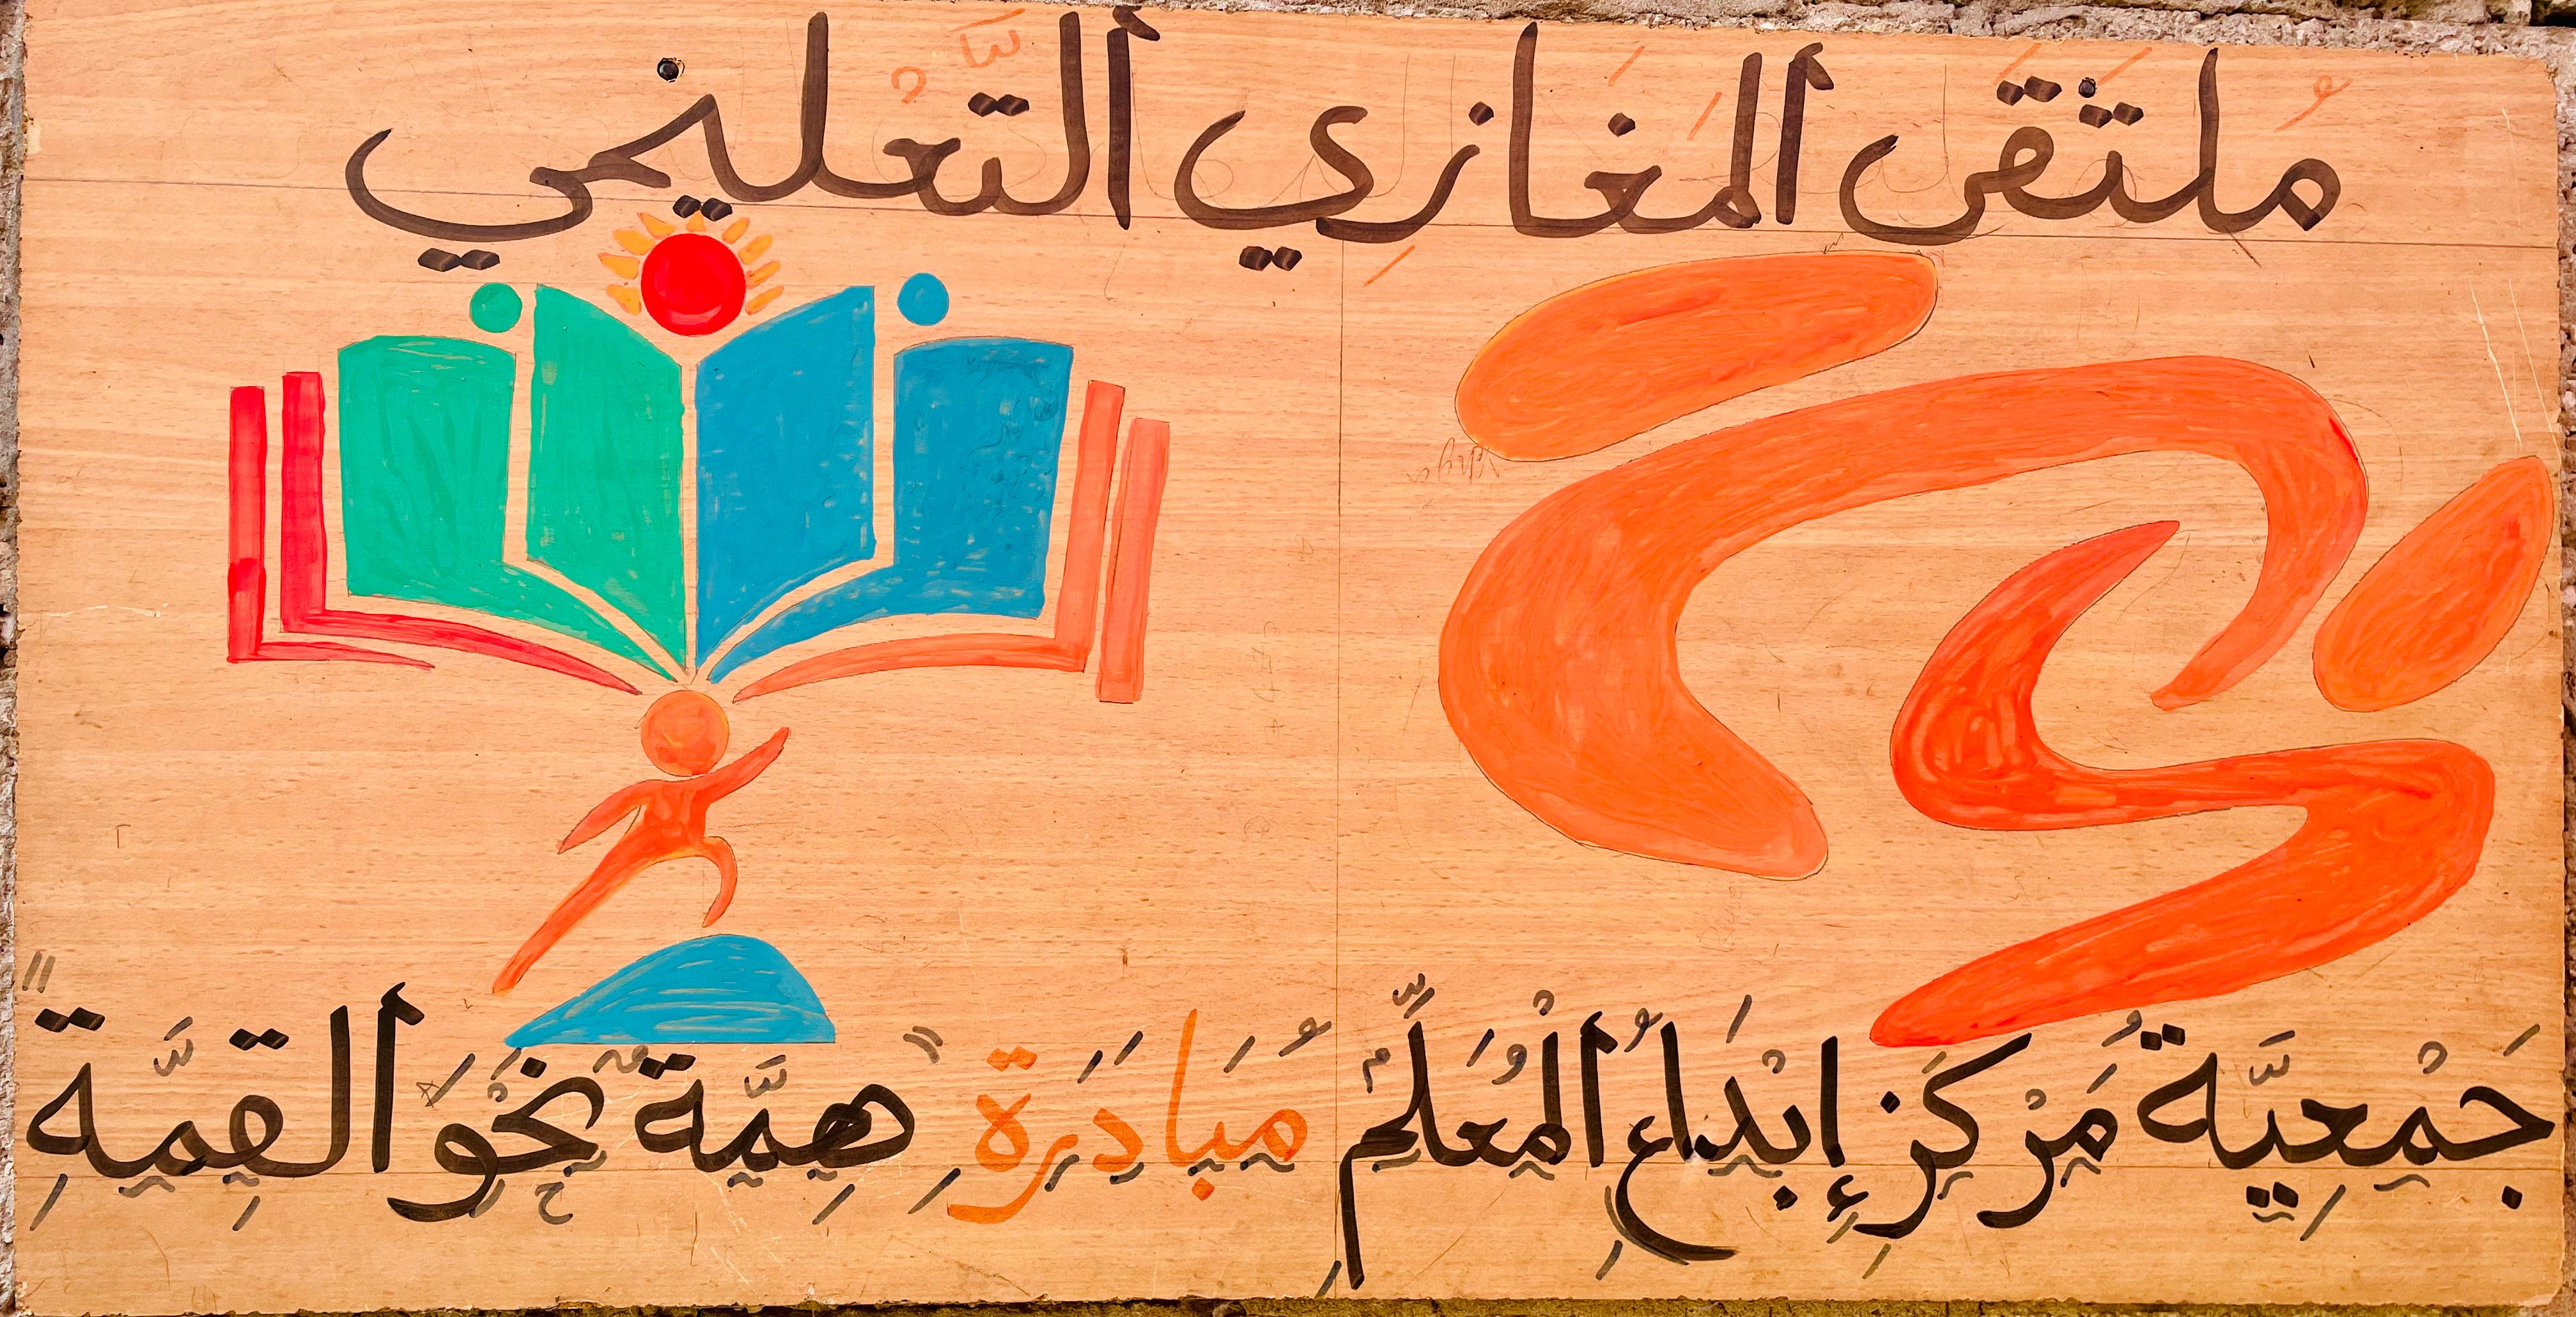 مُلتَقَى المَغَازِي التَّعْلِيمِي
جَمْعِيَّةُ مَرْكَزِ إِبْدَاعِ الْمُعَلِّمِ مُبَادَرَةِ "هِمَّةٌ نَحْوَ القِمَّةِ"